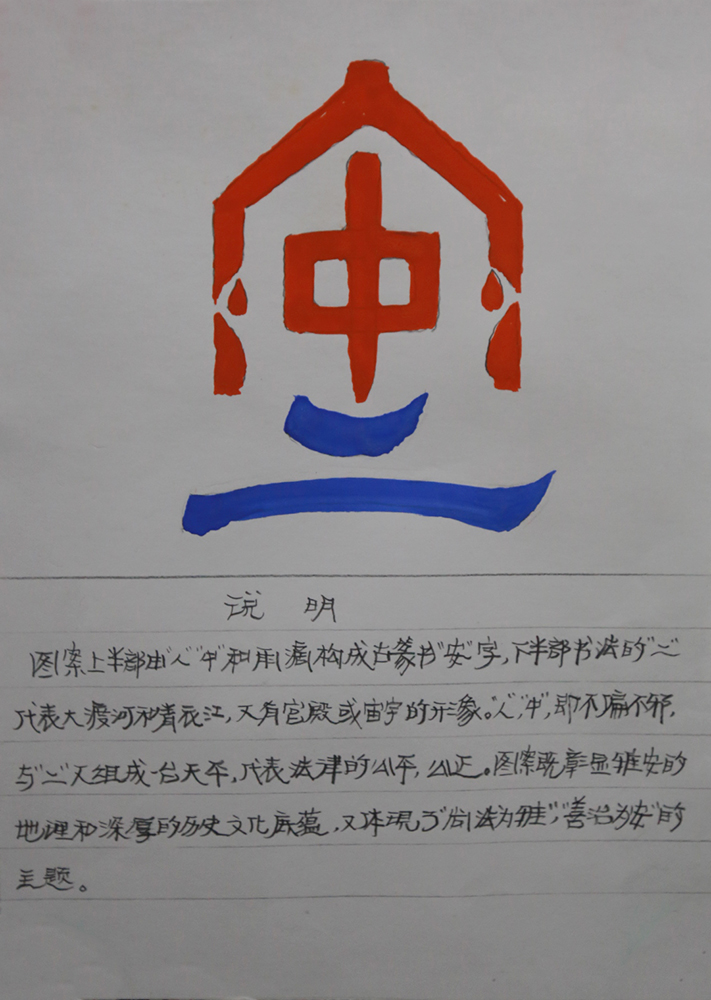 中
说 明
图案上半部由“人”“中”和雨滴构成古篆书“安”字，下半部书法的“二”
代表大渡河和青衣江，又有宫殿或宙宇的形象。“人”，“中”，即不偏不邪，
与“二”又组成一台天平，代表法律的公平，公正。图案既彰显雅安的
地理和深厚的历史文化底蕴，又体现了“尚法为雅”，“善治为安”的
主题。